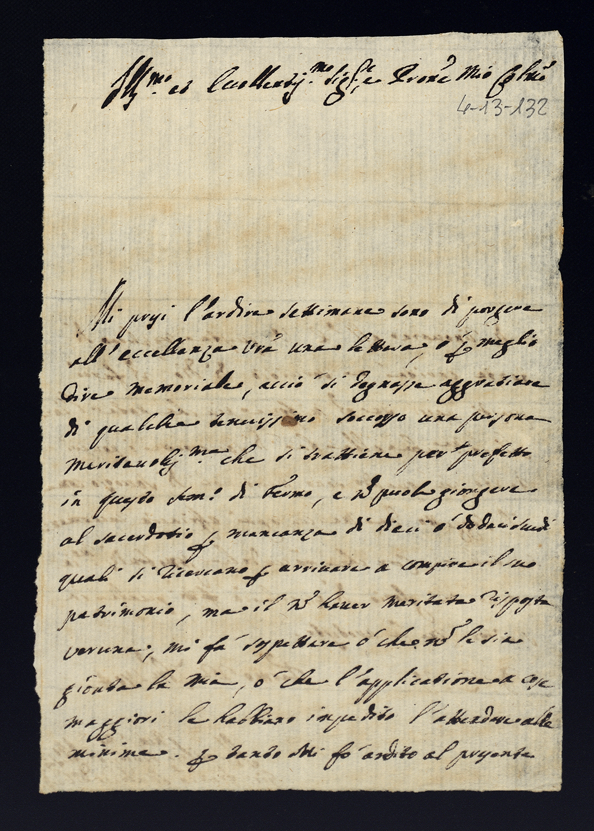 Ill.mo et Eccellentis.mo Sig.re e Prone Mio Colmo
4-13-132
Mi presi l'ardire settimane sono di porgere
all'eccellenza Vra una lettera, ó p meglio
dire memoriale, acció si degnasse aggratiare
di qualche tenuissimo soccorso una persona
meritevolis.ma che si trattiene per prefetto
in questo sem.o di Fermo, e nõ puole giongere
al sacerdotio p mancanza di dieci ó dodeci scudi
quali si ricercano p arrivare a compire il suo
patrimonio, ma il nõ haver meritata risposta
veruna, mi fá sospettare ó che nõ le sia
gionta la mia, ó che l'applicatione a cose
maggiori le habbiano impedito l'attendere alle
minime. p tanto Mi fó ardito al presente